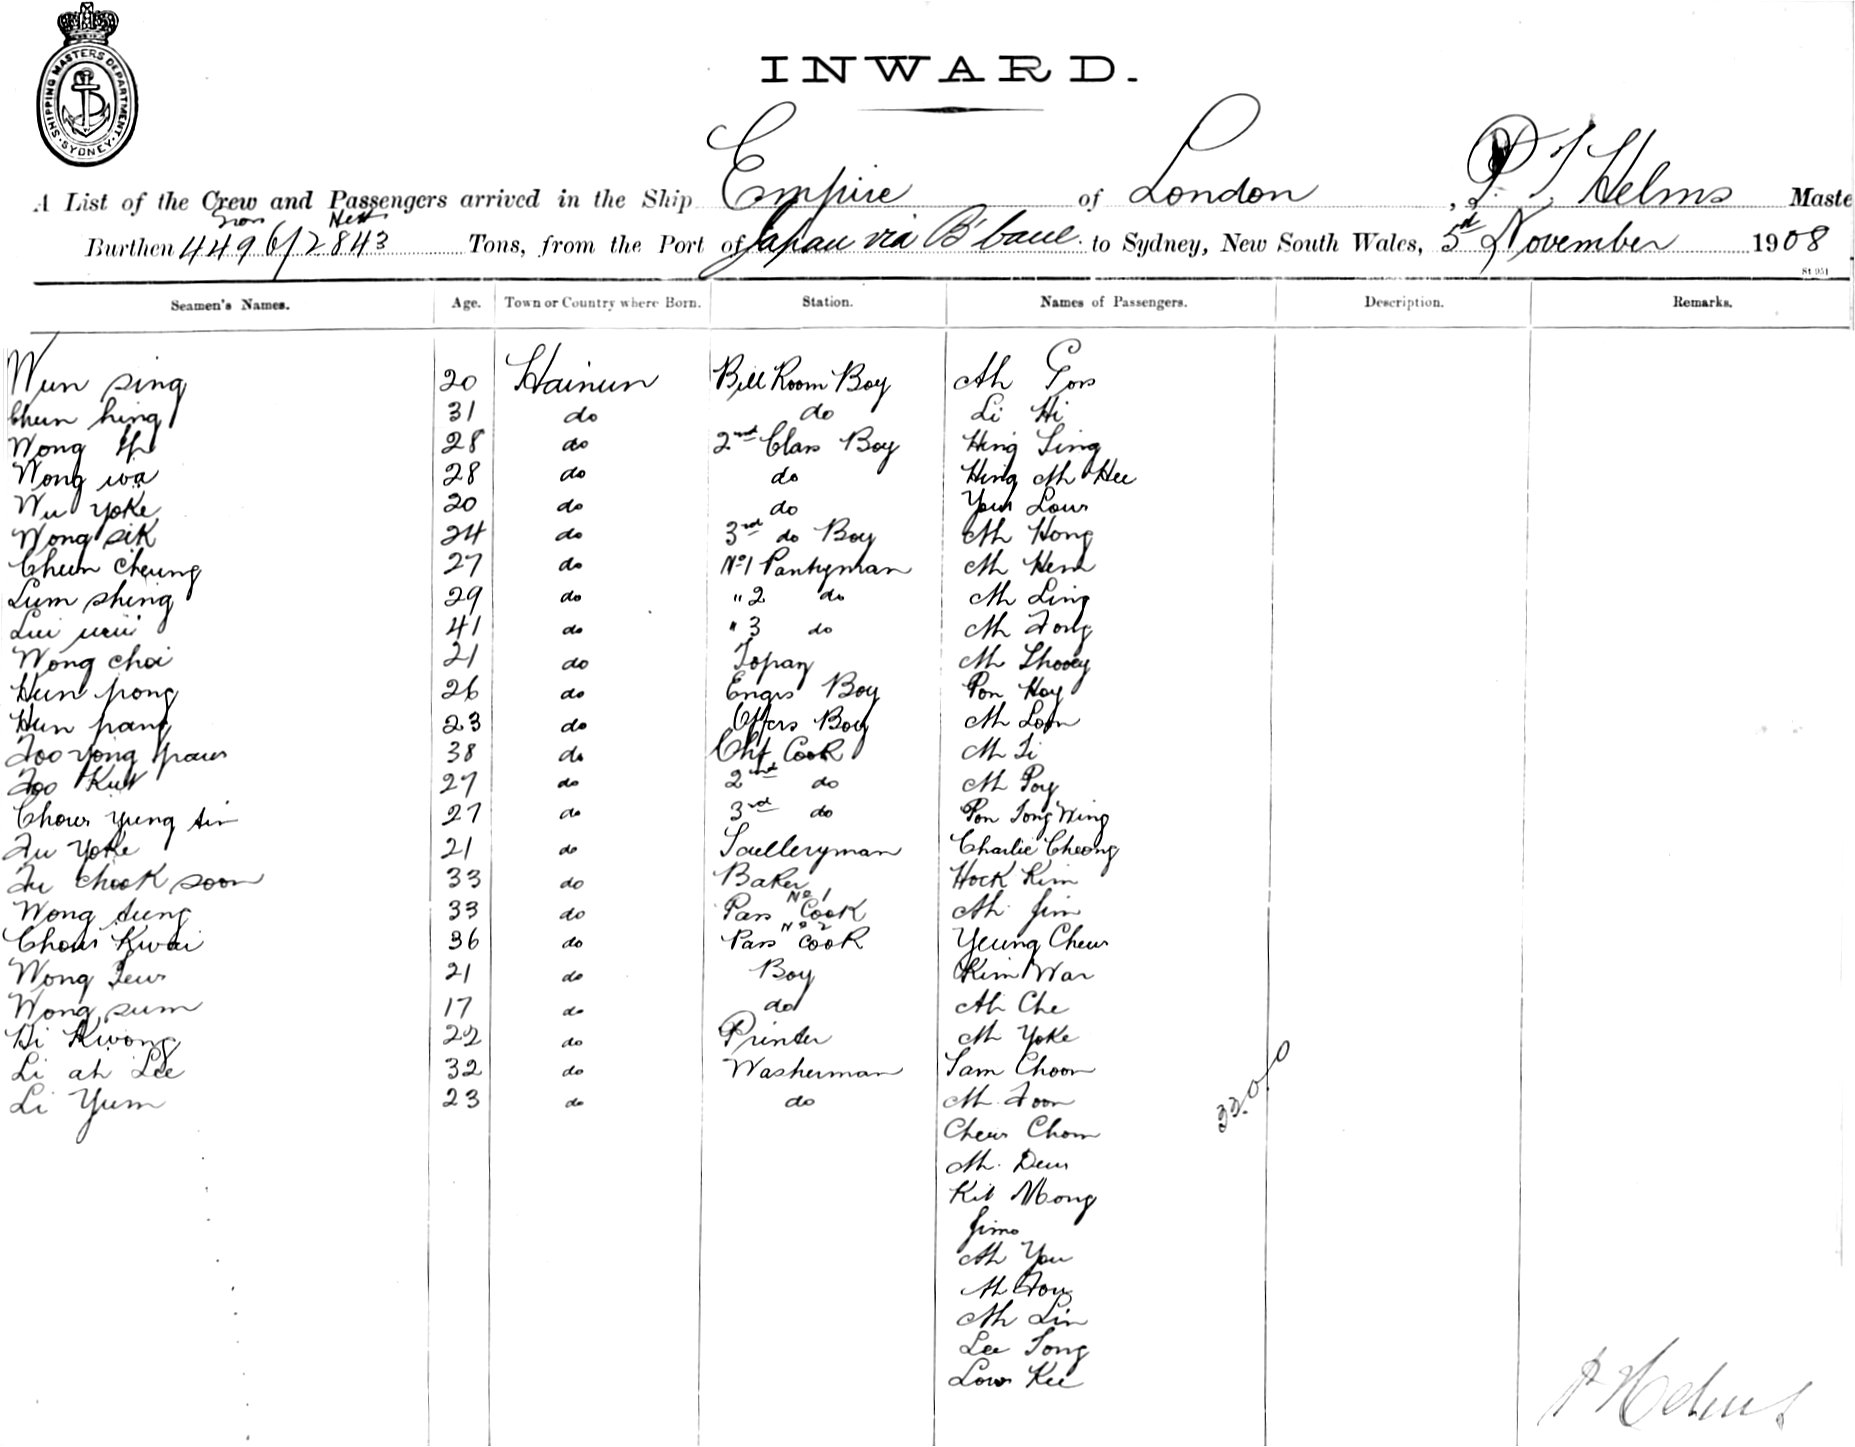 SHIPPING MASTERS DEPARTMENT
SYDNEY
INWARD.
A List of the Crew and Passengers arrived in the Ship Empire of London, P. T. Helms Maste
Gross Nett
Burthen 4496/2843 Tons, from the Port of Japan via B'bane to Sydney, New South Wales, 5rd November 1908
St 951
Seamen's Names. Age. Town or Country where Born. Station. Names of Passengers. Description. Remarks.
Wun sing 20 Hainun Bill Room Boy Ah
Chun hing 31 do do Li Hi
Wong 28 do 2nd Class Boy Hing Sing
Wong wa 28 do do Hing Ah Hee
Wu Yoke 20 do do Low
Wong sik 24 do 3rd do Boy Ah Hong
Chun Cheung 27 do No 1 Pantryman Ah Hem
Lum shing 29 do " 2 do Ah Ling
Lui 41 do " 3 do Ah Fong
Wong choi 21 do Topay Ah Shooey
Hun pong 26 do Engrs Boy Pon Hoy
Hun pang 23 do Offcrs Boy Ah Loon
Foo yong 38 do Chf Cook Ah Ti
Foo 27 do 2nd do Ah Poy
Chow yung tin 27 do 3rd do Pon Tong Wing
Fu Yoke 21 do Sculleryman Charlie Cheong
Fu Cheok soon 33 do Baker Hock Kim
Wong tung 33 do Pass No 1 Cook Ah Jim
Chow Kwai 36 do Pass No 2 Cook Yeung Chew
Wong Sew 21 do Boy Kim War
Wong sum 17 do do Ah Che
Hi Kwong 22 do Printer Ah Yoke
Li ah Lee 32 do Washerman Sam Choon
Li Yum 23 do do Ah Foon
33.0.0
Chew Chom
Ah Dew
Kit Mong
Jimo
Ah You
Ah Fou
Ah Lin
Lee Song
Low Kee
P Helms